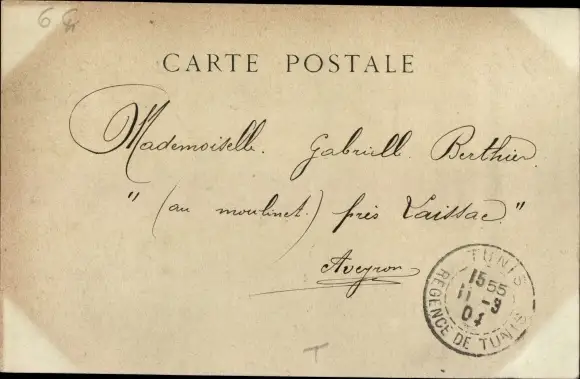 6
CARTE POSTALE
Mademoiselle. Gabrielle Berthier.
"(au moulinet.) près Laissac"
Aveyron
TUNIS
15 55
11 - 9
04
REGENCE DE TUNIS
T